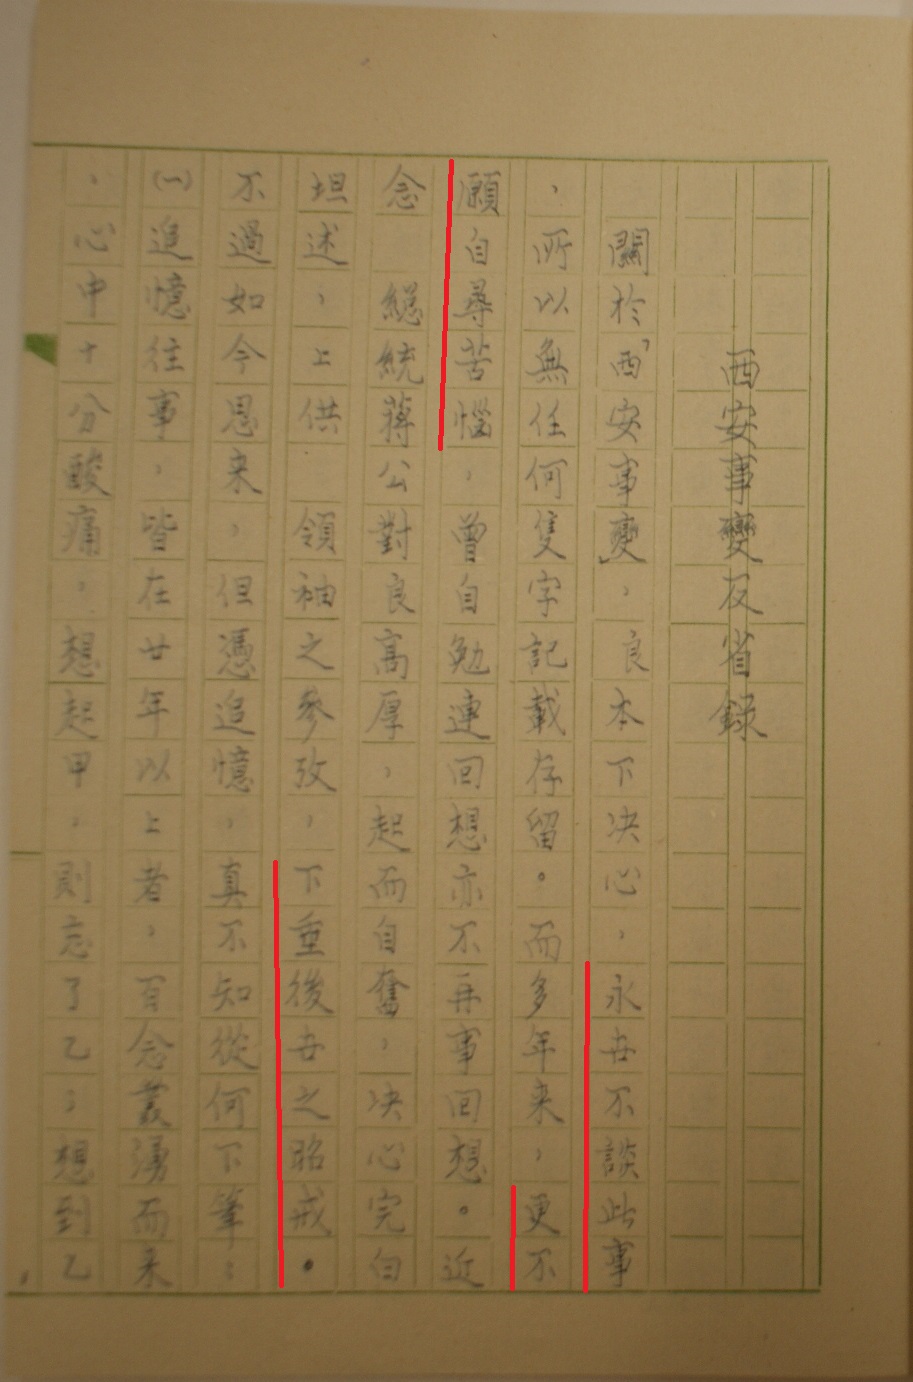 西安事變反省錄
關於「西安事變」，良本下决心，永世不談此事
，所以無任何隻字記載存留。而多年来，更不
願自尋苦惱，曾自勉連回想亦不再事回想。近
念　總統蔣公對良高厚，起而自奮，决心完白
坦述，上供　領袖之參攷，下重後世之昭戒。
不過如今思来，但憑追憶，真不知從何下筆；
㈠追憶往事，皆在廿年以上者，百念叢湧而来
，心中十分酸痛，想起甲，則忘了乙；想到乙
，